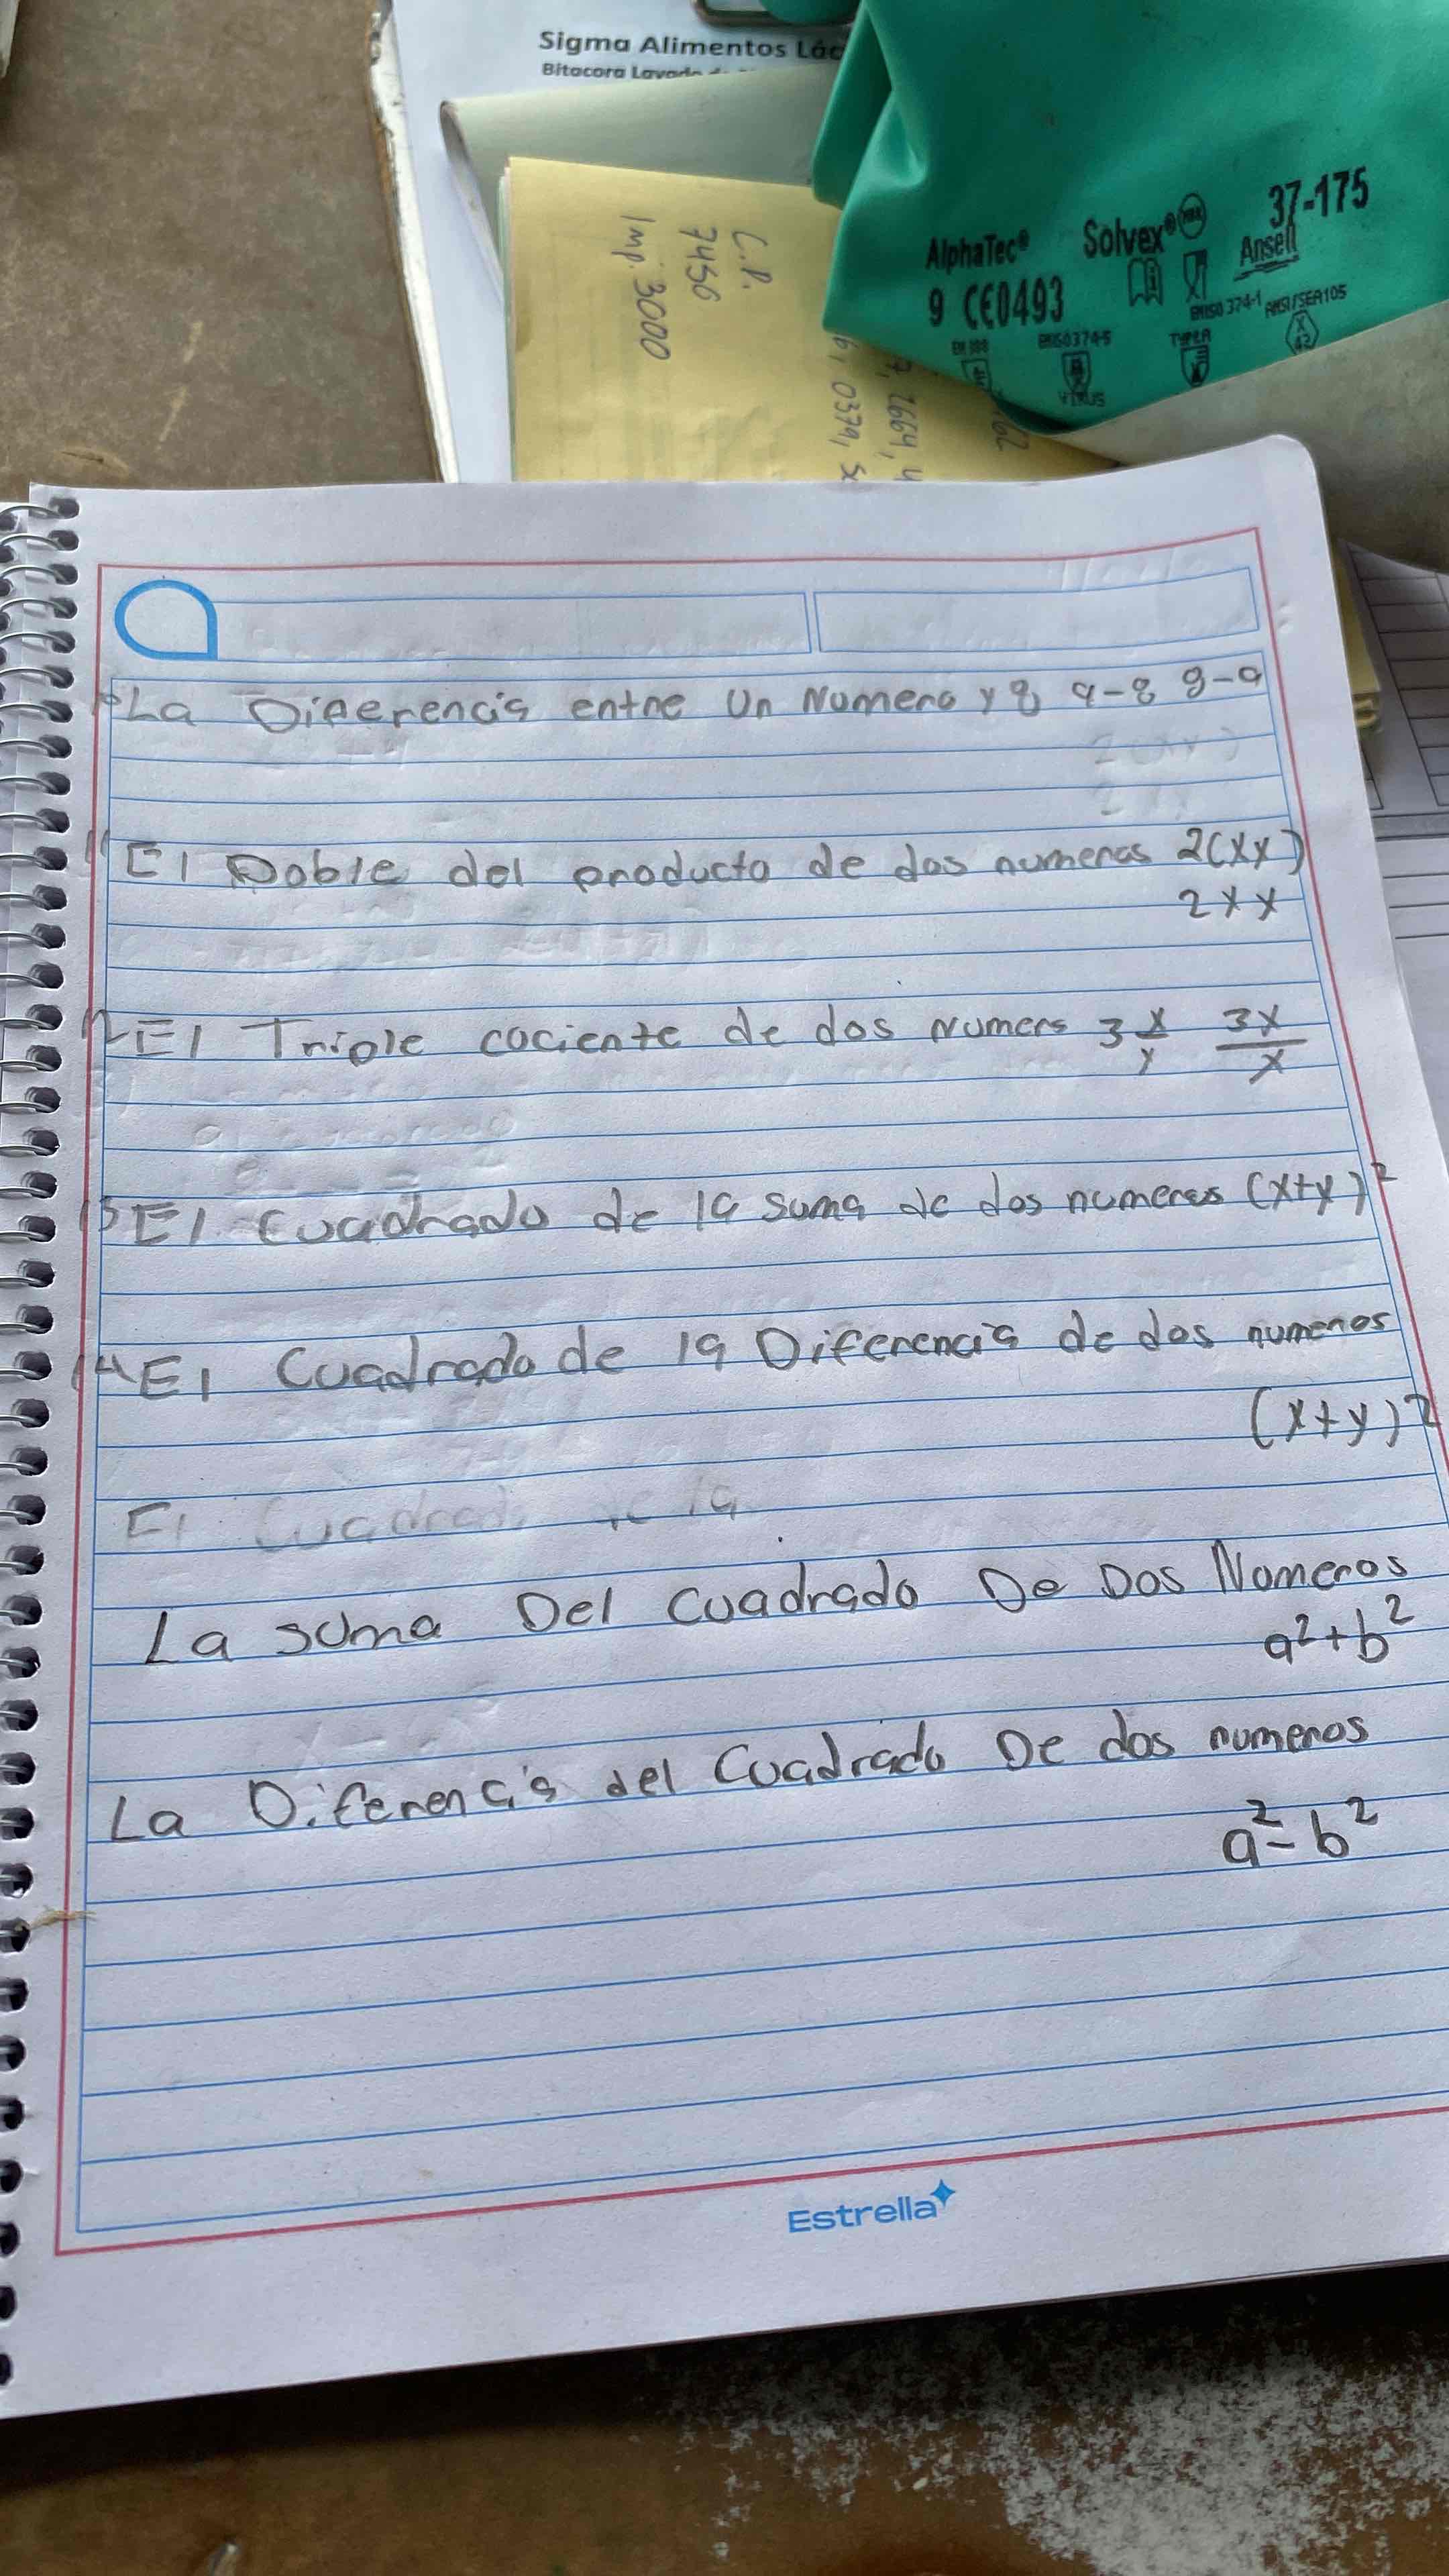 Sigma Alimentos Lác
Bitacora Lavado
C.P.
7450
Imp. 3000
7, 2664, 4
6, 0379, 5
162
AlphaTec® Solvex® 37-175
9 CE0493 Ansell
EN 388 EN ISO 374-5 EN ISO 374-1 ANSI/SEA 105
VIRUS TYPE A X 42
La Diferencia entre Un Numero y 8 a-8 8-a
11 El Doble del producto de dos numeros 2(xy)
2xy
12 El Triple cociente de dos Numers 3 x/y 3x/x
13 El Cuadrado de la suma de dos numeros (x+y)²
14 El Cuadrado de la Diferencia de dos numeros
(x+y)²
El Cuadrado de la
La suma Del cuadrado De Dos Numeros
a²+b²
La Diferencia del Cuadrado De dos numeros
a²-b²
Estrella